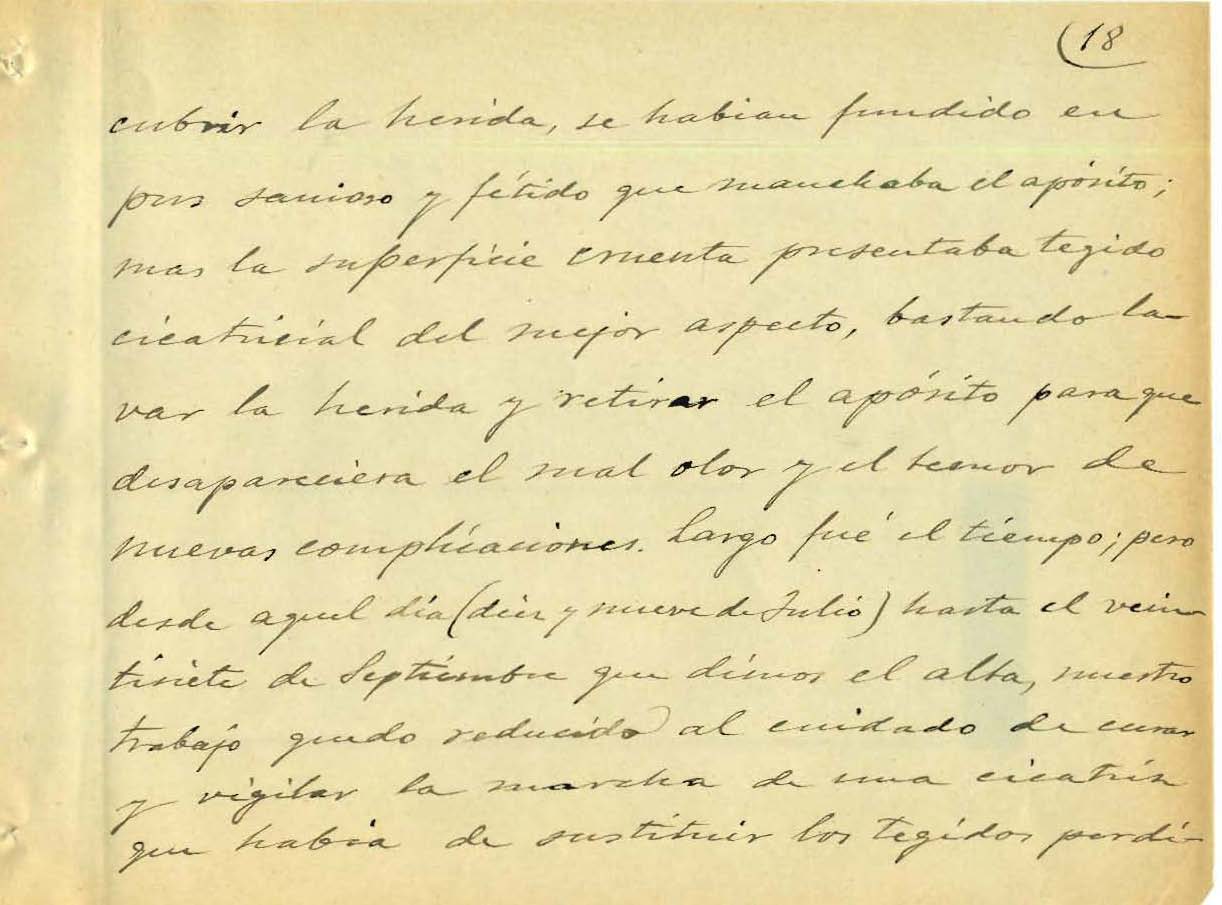 (18
cubrir la herida, se habian fundido en
pus sanioso y fétido que manchaba el apósito;
mas la superficie cruenta presentaba tegido
cicatricial del mejor aspecto, bastando la-
var la herida y retirar el apósito para que
desapareciera el mal olor y el temor de
nuevas complicaciones. Largo fué el tiempo; pero
desde aquel día (diez y nueve de Julio) hasta el vein-
tisiete de Septiembre que dimos el alta, nuestro
trabajo quedo reducido al cuidado de curar
y vigilar la marcha de una cicatriz
que había de sustituir los tegidos perdi-